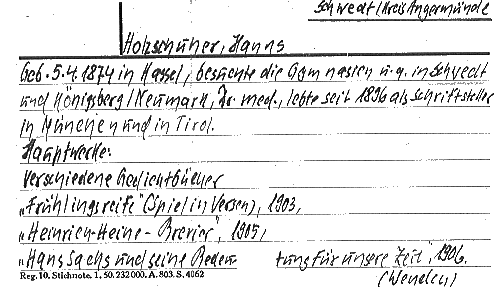 Schwedt/Kreis Angermünde
Holzschuher, Hanns
Geb. 5.4.1874 in Kassel, besuchte die Gymnasien u.a. in Schwedt
und Königsberg/Neumark, Dr. med., lebte seit 1896 als Schriftsteller
in München und in Tirol.
Hauptwerke:
Verschiedene Gedichtbücher
„Frühlingsreife" (Spiel in Versen), 1903,
„Heinrich-Heine-Brevier", 1905,
„Hans Sachs und seine Bedeu tung für unsere Zeit", 1906.
(Wenden)
Reg. 10. Stichnote. 1, 50. 232000. A. 803. S. 4062